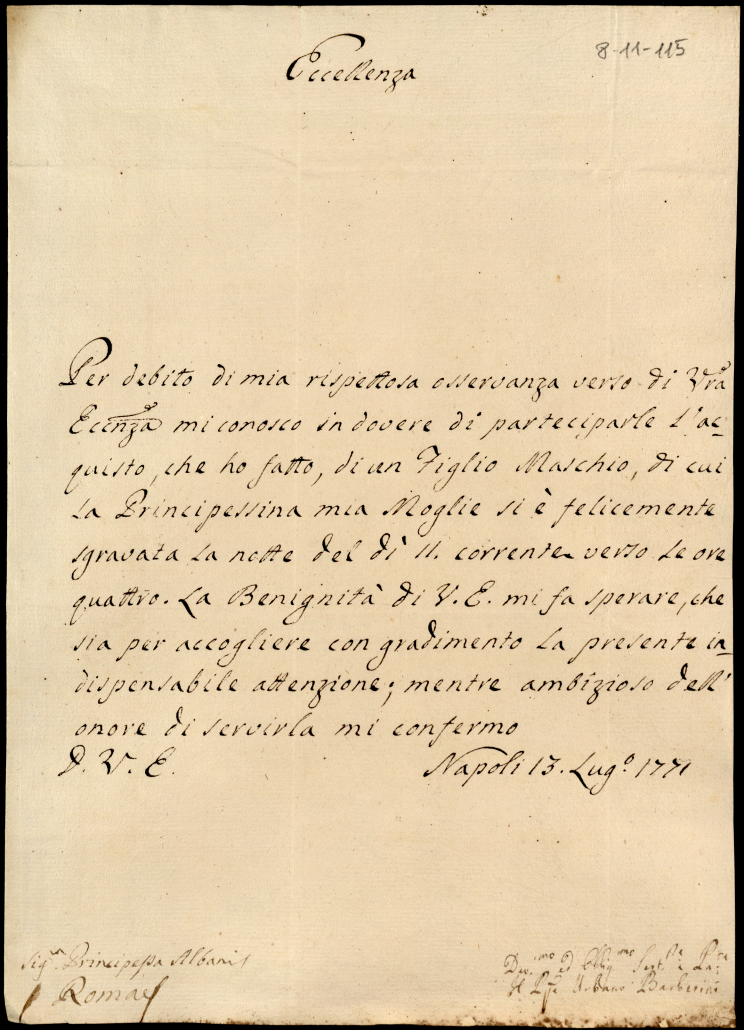 8-11-115
Eccellenza
Per debito di mia rispettosa osservanza verso di Vrã
Eccnza mi conosco in dovere di parteciparle l'ac=
quisto, che ho fatto, di un Figlio Maschio, di cui
la Principessina mia Moglie si è felicemente
sgravata la notte del dì 11. corrente verso le ore
quattro. La Benignità di V.E. mi fa sperare, che
sia per accogliere con gradimento la presente in=
dispensabile attenzione; mentre ambizioso dell'
onore di servirla mi confermo
D. V. E.
Napoli 13. Lug.º 1771
Sig.ra Principessa Albani
Roma
Dev.mo ed Obblig.mo
Urbano Barberini